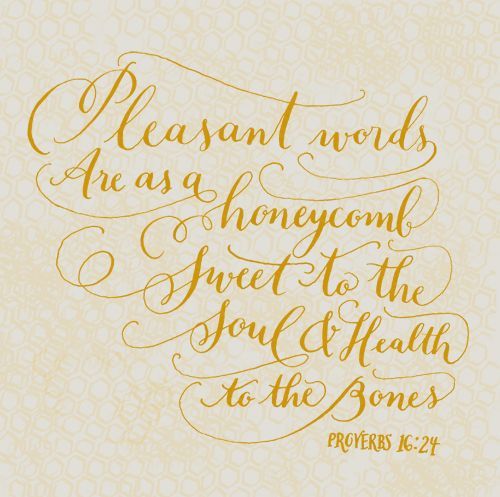 Pleasant words
Are as a
honeycomb
Sweet to the
Soul & Health
to the Bones
PROVERBS 16:24